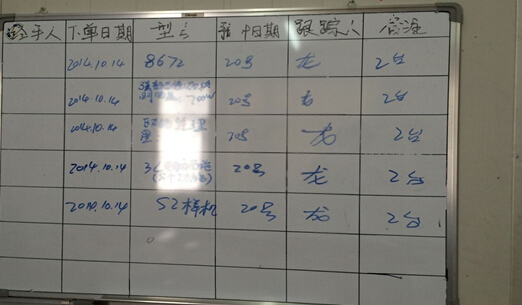 经手人 下单日期 型号 日期 跟踪人 备注
2014.10.14 8672 20号 龙 2台
2014.10.14 20号 龙 2台
2014.10.14 管理 20号 龙 2台
理
2014.10.14 20号 龙 2台
2014.10.14 S2样机 20号 龙 2台